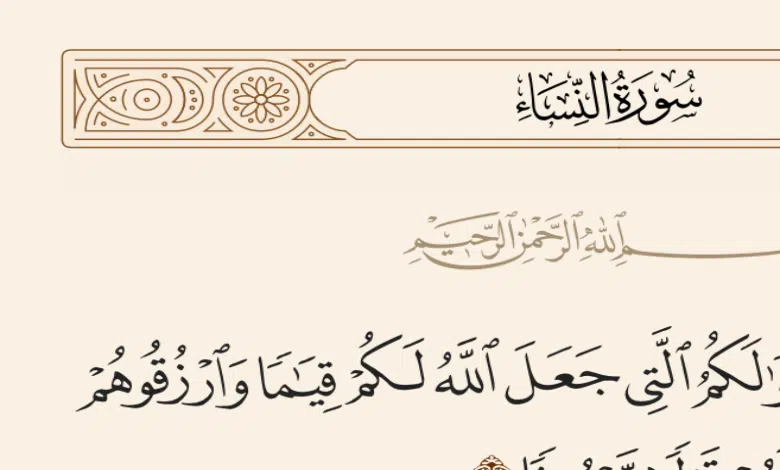 سُورَةُ النِّسَاءِ
ٱللَّهِ ٱلرَّحْمَٰنِ ٱلرَّحِيمِ
ٱلَّتِى جَعَلَ ٱللَّهُ لَكُمْ قِيَٰمًا وَٱرْزُقُوهُمْ